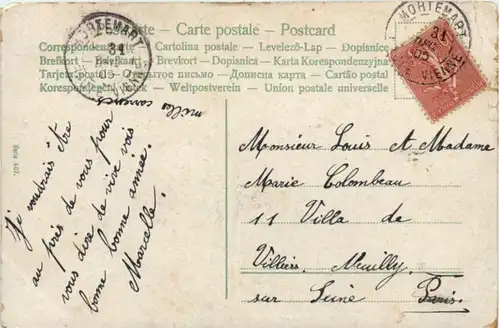 Carte postale - Postcard
Correspondenzkarte - Cartolina postale - Levelező-Lap - Dopisnice
Brefkort - Brevkort - Dopisnica - Karta Korespondenzyjna
письмо - Дописна карта - Cartão postal
Weltpostverein - Union postale universelle
MORTEMART
31
05
VIENNE
MORTEMART
31
05
VIENNE
Serie 402.
milles caresses
Je voudrais être
au près de vous pour
vous dire de vive voix
bonne bonne année.
Marcelle.
Monsieur Louis et Madame
Marie Colombeau
11 Villa de
Villiers, Neuilly,
sur Seine Paris.